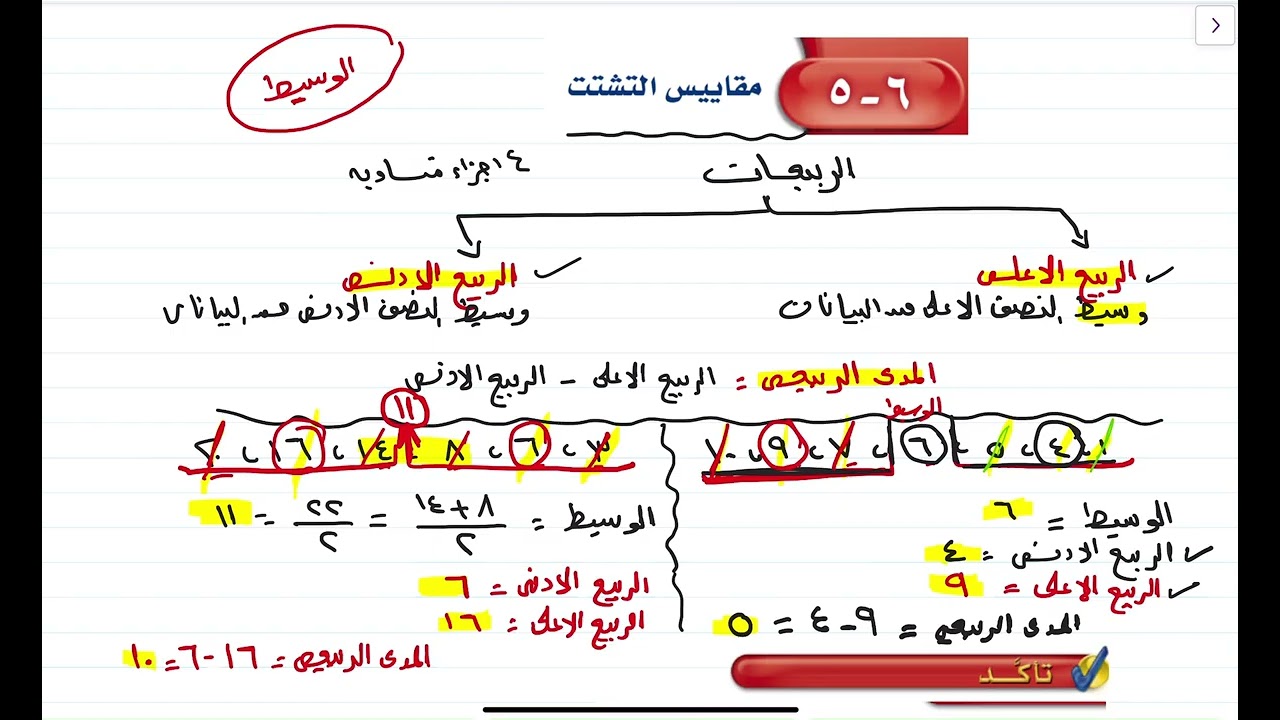 الوسيط
٦ - ٥ مقاييس التشتت
الربيعات
٤ اجزاء متساويه
الربيع الاعلى
وسيط النصف الاعلى من البيانات
الربيع الادنى
وسيط النصف الادنى من البيانات
المدى الربيعي = الربيع الاعلى - الربيع الادنى
الوسيط
١ ، ٤ ، ٥ ، ٦ ، ٧ ، ٩ ، ١٠
الوسيط = ٦
الربيع الادنى = ٤
الربيع الاعلى = ٩
المدى الربيعي = ٩ - ٤ = ٥
١١
٣ ، ٦ ، ٨ ، ١٤ ، ١٦ ، ٢٠
الوسيط = ٨ + ١٤ / ٢ = ٢٢ / ٢ = ١١
الربيع الادنى = ٦
الربيع الاعلى = ١٦
المدى الربيعي = ١٦ - ٦ = ١٠
تأكَّد